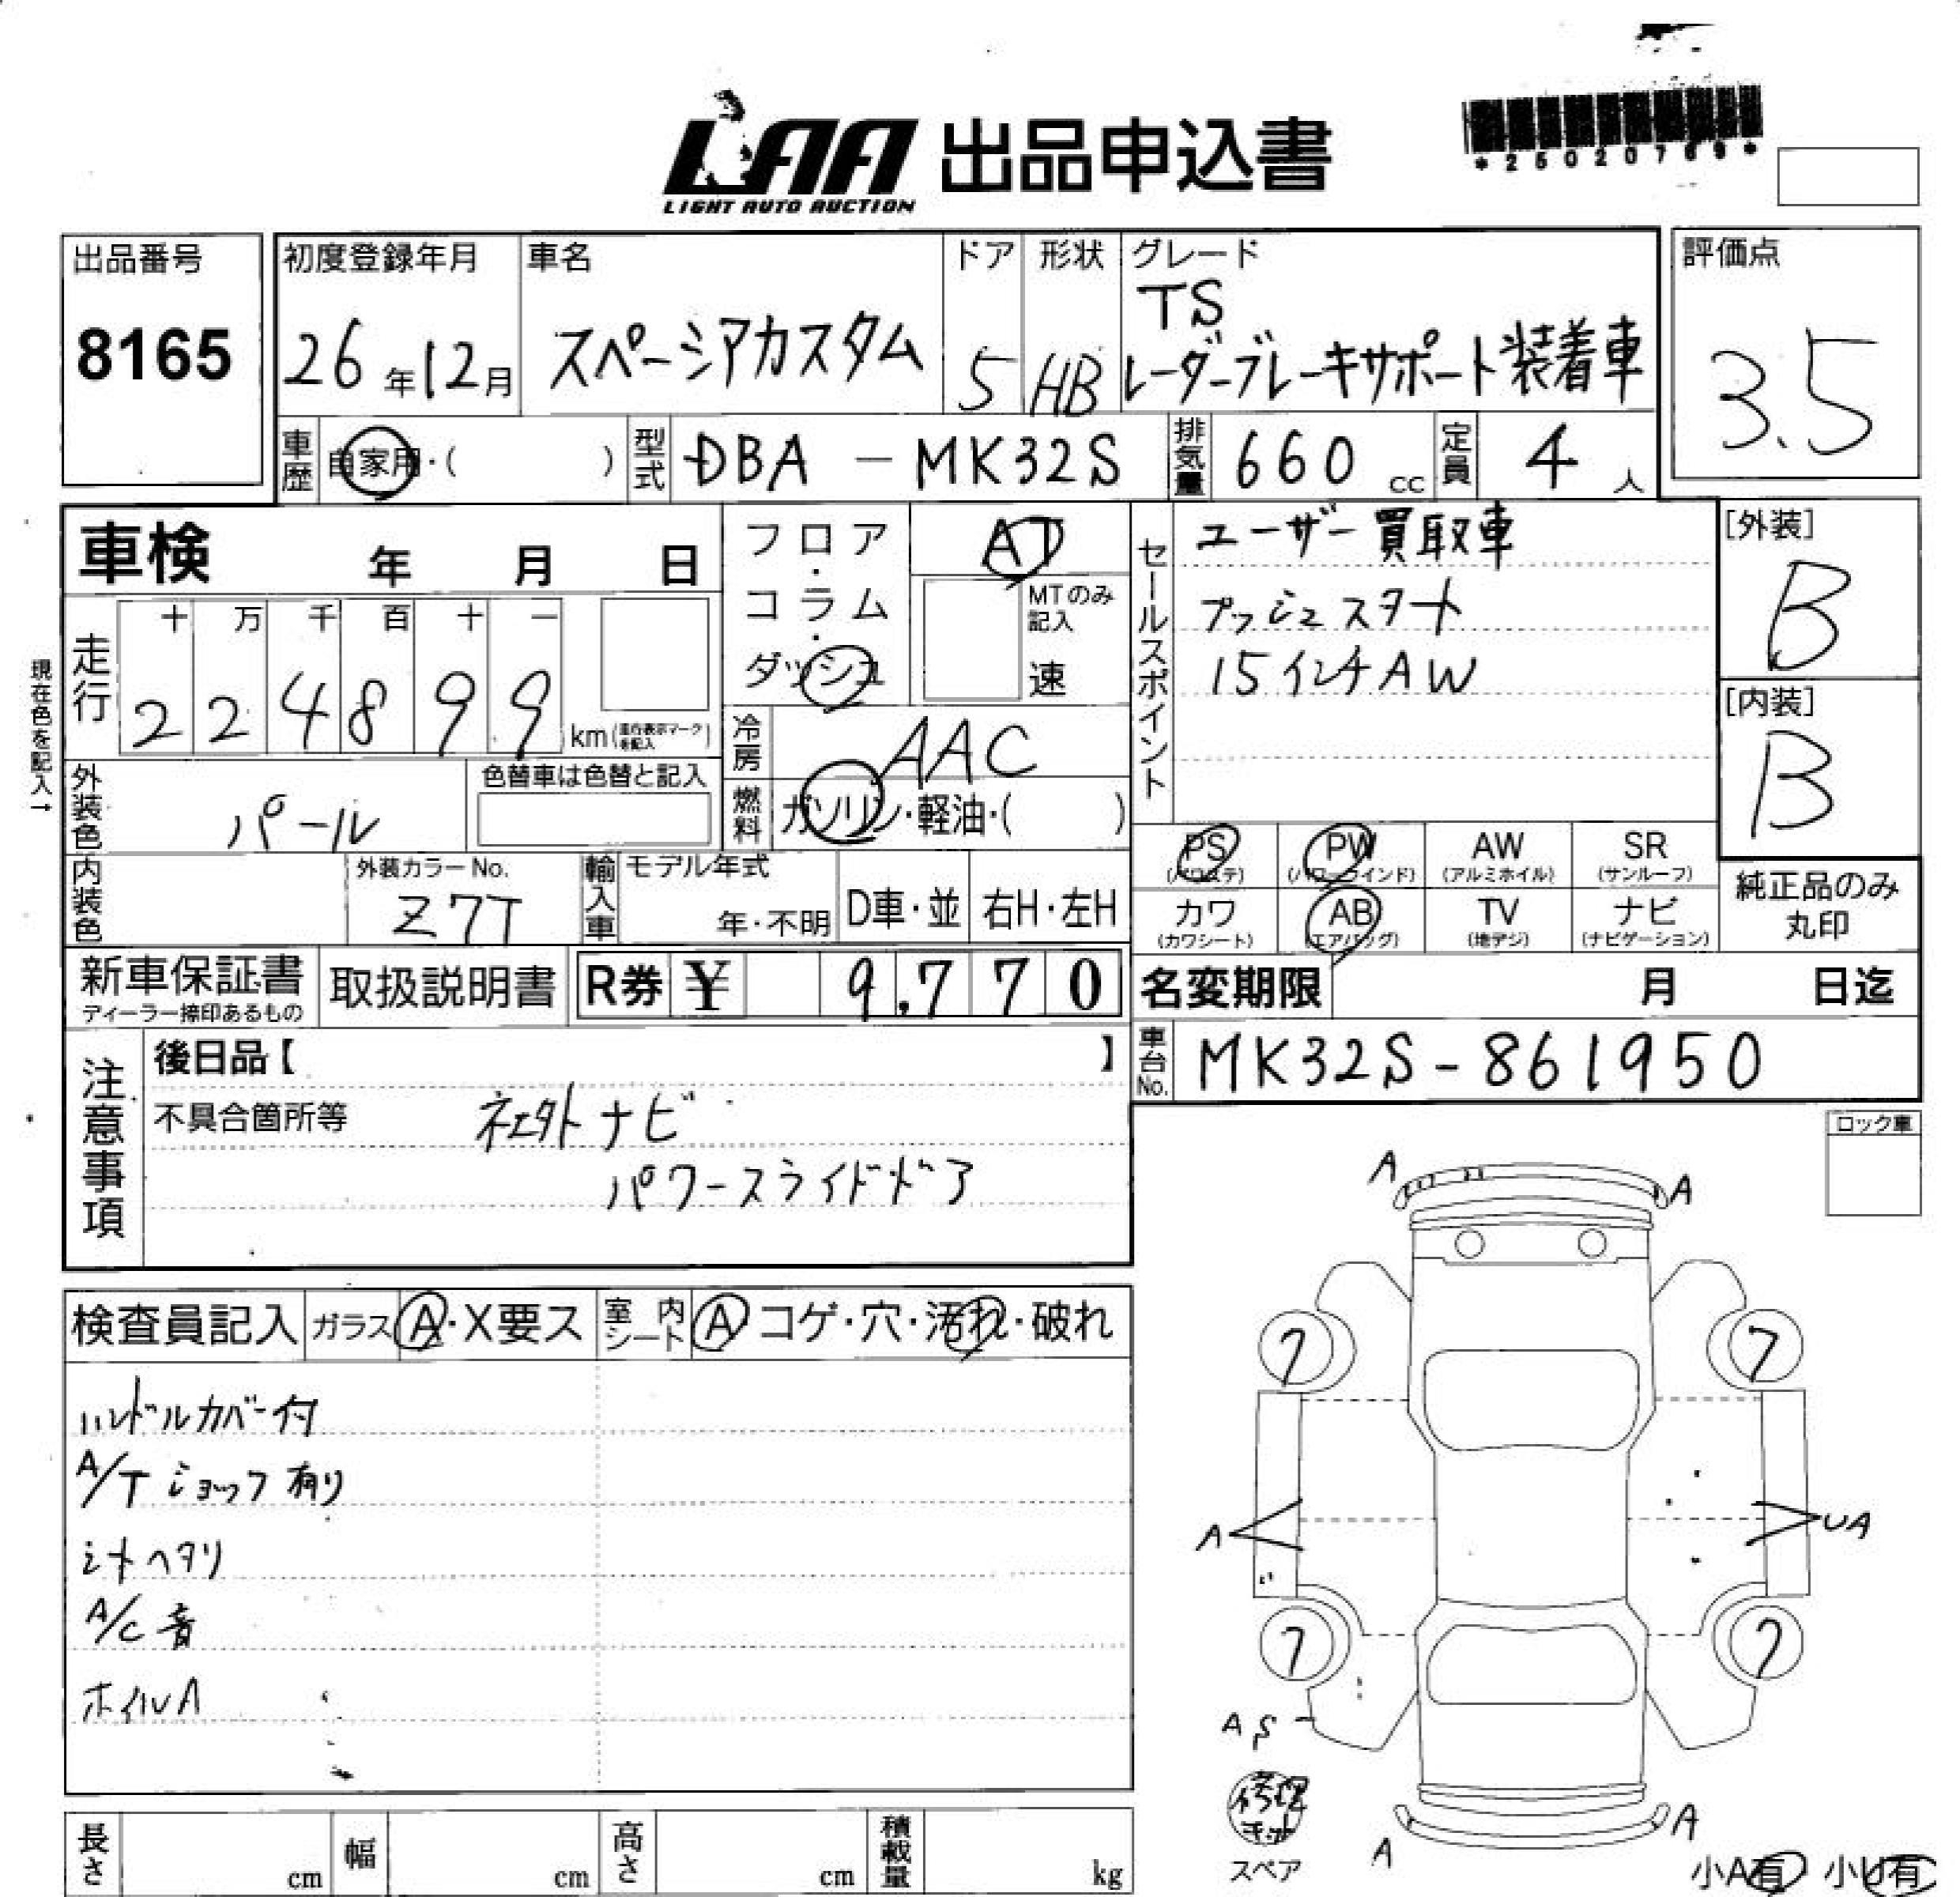 LAA 出品申込書
LIGHT AUTO AUCTION
*25020769*
出品番号
8165
初度登録年月
26年12月
車名
スペーシアカスタム
ドア
5
形状
HB
グレード
TS
レーダーブレーキサポート装着車
評価点
3.5
車歴
自家用・( )
型式
DBA - MK32S
排気量
660 cc
定員
4 人
車検 年 月 日
走行
十 万 千 百 十 一
2 2 4 8 9 9 km (走行表示マークを記入)
現在色を記入→
外装色
パール
色替車は色替と記入
内装色
外装カラーNo.
Z7T
フロア・コラム・ダッシュ
AT
MTのみ記入
速
冷房
AAC
燃料
ガソリン・軽油・( )
輸入車
モデル年式
年・不明
D車・並
右H・左H
セールスポイント
ユーザー買取車
プッシュスタート
15インチAW
[外装]
B
[内装]
B
PS PW AW SR
(パワステ) (パワーウインド) (アルミホイル) (サンルーフ)
カワ AB TV ナビ
(カワシート) (エアバッグ) (地デジ) (ナビゲーション)
純正品のみ
丸印
新車保証書
ディーラー捺印あるもの
取扱説明書
R券 ¥ 9,770
名変期限 月 日迄
車台No.
MK32S-861950
注意事項
後日品【 】
不具合箇所等
社外ナビ
パワースライドドア
ロック車
検査員記入
ガラス A・X要ス
室内シート A コゲ・穴・汚れ・破れ
ハンドルカバー付
A/Tショック有り
シートヘタリ
A/C音
ホイルA
A A
7 7
A UA
7 7
AS
修理キット
スペア
A A
小A有 小U有
長さ cm
幅 cm
高さ cm
積載量 kg